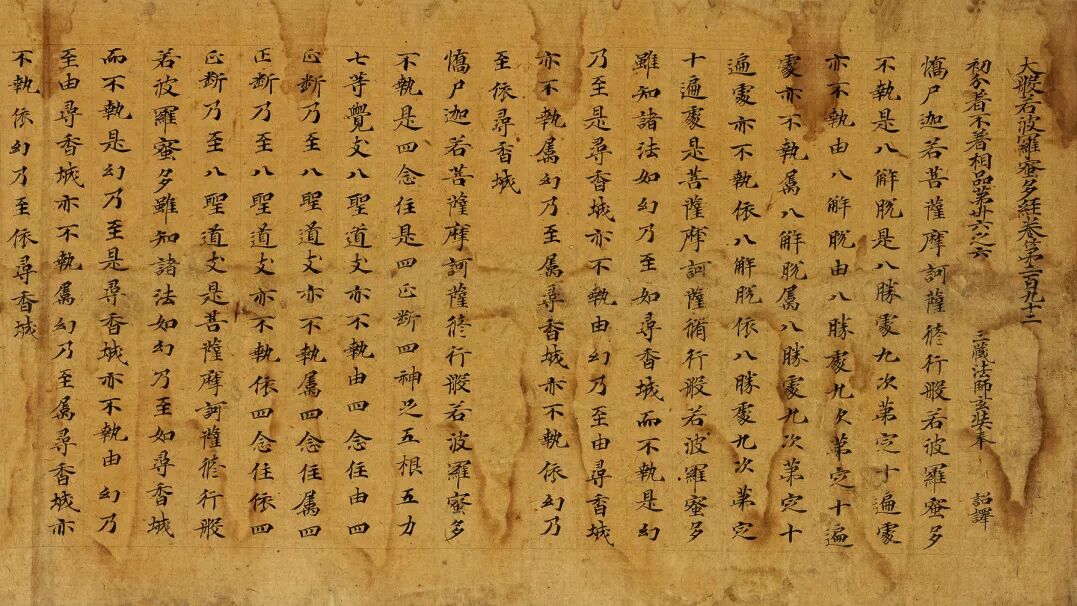 大般若波羅蜜多経巻第二百九十二
初分著不著相品第卅六之六　三蔵法師玄奘奉　詔譯
憍尸迦若菩薩摩訶薩修行般若波羅蜜多
不執是八解脱是八勝處九次第定十遍處
亦不執由八解脱由八勝處九次第定十遍
處亦不執属八解脱属八勝處九次第定十
遍處亦不執依八解脱依八勝處九次第定
十遍處是菩薩摩訶薩脩行般若波羅蜜多
雖知諸法如幻乃至如尋香城而不執是幻
乃至是尋香城亦不執由幻乃至由尋香城
亦不執属幻乃至属尋香城亦不執依幻乃
至依尋香城
憍尸迦若菩薩摩訶薩修行般若波羅蜜多
不執是四念住是四正断四神足五根五力
七等覺支八聖道支亦不執由四念住由四
正断乃至八聖道支亦不執属四念住属四
正断乃至八聖道支亦不執依四念住依四
正断乃至八聖道支是菩薩摩訶薩修行般
若波羅蜜多雖知諸法如幻乃至如尋香城
而不執是幻乃至是尋香城亦不執由幻乃
至由尋香城亦不執属幻乃至属尋香城亦
不執依幻乃至依尋香城